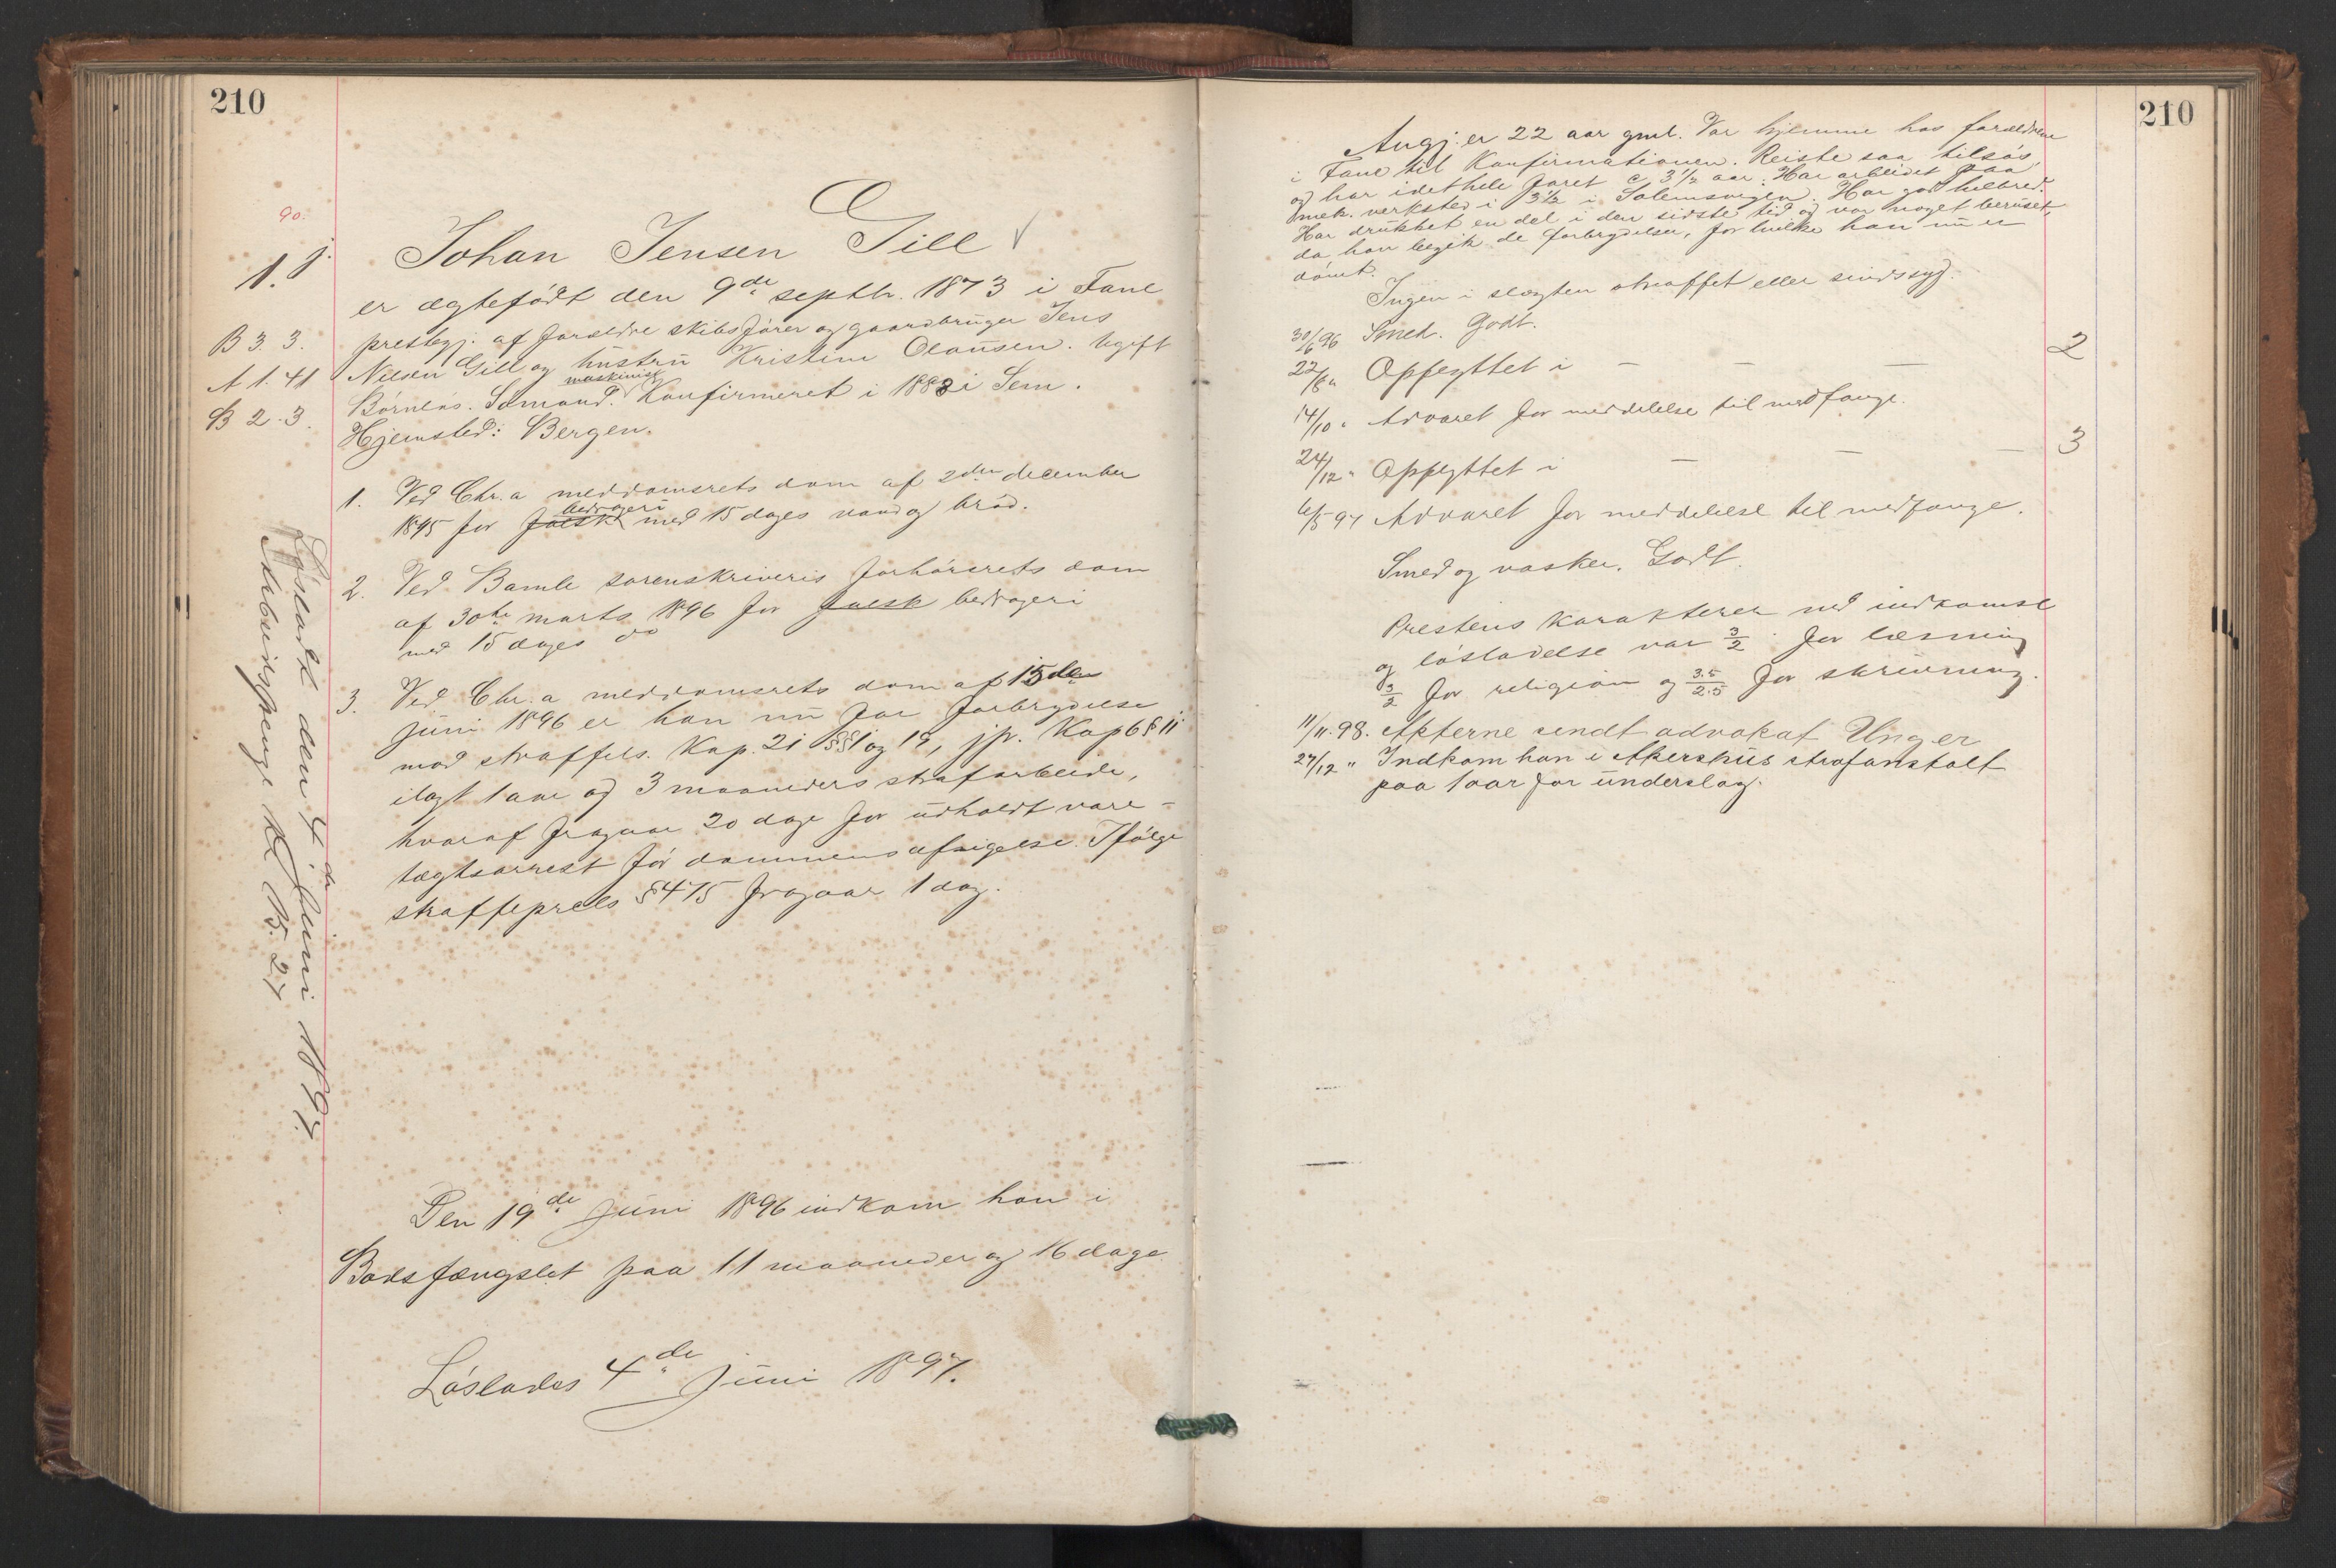 210
90.
1. j.
Johan Jensen Gill
er ægtefödt den 9de septbr. 1873 i Fane
B 3. 3.
prestegj. af forældre skibsfører og gaardbruger Jens
A 1. 41
Nilsen Gill og hustru Kristine Olausen. Ugift
maskinist
B 2. 3.
Börnlös. Sömand. Konfirmeret i 1888 i Sem.
Hjemsted: Bergen.
1. Ved Chr.a meddomsrets dom af 2den december
bedrageri
1895 for falsk med 15 dages vand og bröd.
2. Ved Bamle sorenskriveris forhörsrets dom
af 30te marts 1896 for falsk bedrageri
med 15 dages do
3. Ved Chr.a meddomsrets dom af 15den
juni 1896 er han nu for forbrydelse
mod straffels. Kap. 21 §§ 1 og 19, jfr. Kap 6 § 11
ilagt 1 aar og 3 maaneders strafarbeide,
hvoraf fragaar 20 dage for udholdt vare-
tægtsarrest för dommens afsigelse. Ifölge
straffeprcls § 475 fragaar 1 dag.
Den 19de juni 1896 indkom han i
Bodsfængslet paa 11 maaneder og 16 dage
Löslades 4de juni 1897.
Lösladt den 4de juni 1897
Arbeidspenge Kr 15.27
210
Angj. er 22 aar gml. Var hjemme hos forældrene
i Fane til Konfirmationen. Reiste saa tilsös,
og har idethele faret c 3 1/2 aar. Har arbeidet paa
mek. verksted i 3 1/2 i Solemsvigen. Har god helbred.
Har drukket en del i den sidste tid og var noget beruset,
da han begik de forbrydelser, for hvilke han nu er
dömt.
Ingen i slægten straffet eller sindssyg.
30/6 96 Smed. Godt.
22/8 " Opflyttet i — — — 2
14/10 " Advaret for meddelelse til medfange.
24/12 " Opflyttet i — — — 3
6/5 97 Advaret for meddelelse til medfange.
Smed og vasker. Godt.
Prestens karakterer ved indkomst
og lösladelse var 3/2 for læsning
3/2 for religion og 3.5/2.5 for skrivning.
11/11. 98. Akterne sendt advokat Unger
27/12 " Indkom han i Akershus strafanstalt
paa 1 aar for underslag.